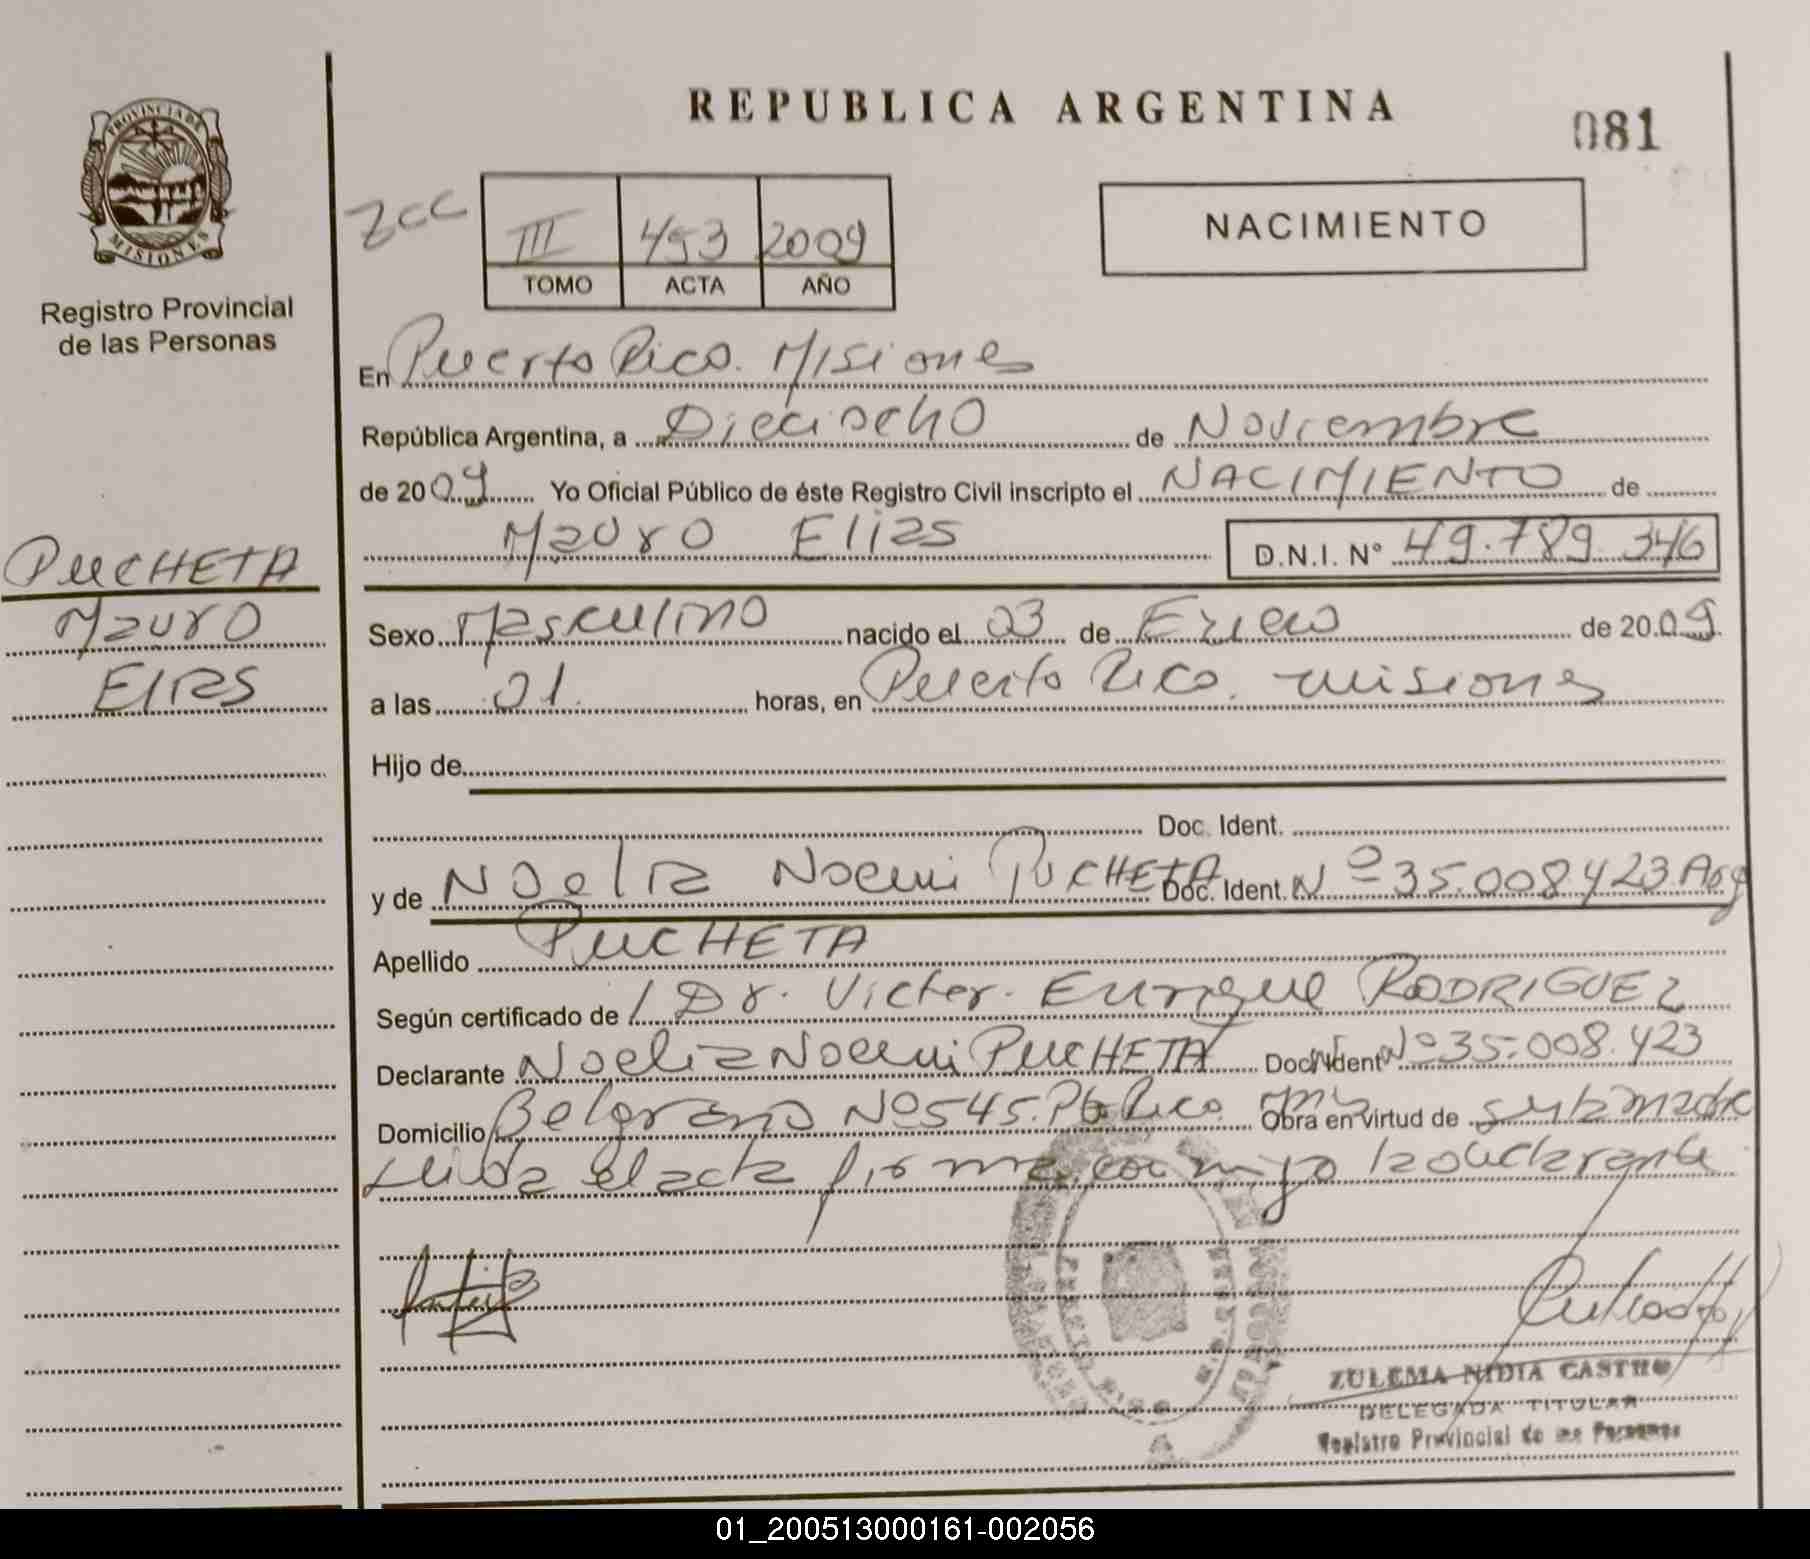 PROVINCIA DE
MISIONES
Registro Provincial
de las Personas
REPUBLICA ARGENTINA
081
NACIMIENTO
III 493 2009
TOMO ACTA AÑO
En Puerto Rico. Misiones
República Argentina, a Dieciocho de Noviembre
de 2009 Yo Oficial Público de éste Registro Civil inscripto el NACIMIENTO de
Mauro Elias D.N.I. Nº 49.789.346
PUCHETA
Mauro
Elias
Sexo Masculino nacido el 03 de Enero de 2009
a las 01. horas, en Puerto Rico. misiones
Hijo de
Doc. Ident.
y de Noelia Noemi PUCHETA Doc. Ident. Nº 35.008.423 Arg
Apellido PUCHETA
Según certificado de Dr. Victor. Enrique RODRIGUEZ
Declarante Noelia Noemi PUCHETA Doc. Ident Nº 35.008.423
Domicilio Belgrano Nº 545. Pto Rico Obra en virtud de ser la madre
Leida el acta firma conmigo la declarante
ZULEMA NIDIA CASTRO
DELEGADA TITULAR
Registro Provincial de las Personas
01_200513000161-002056